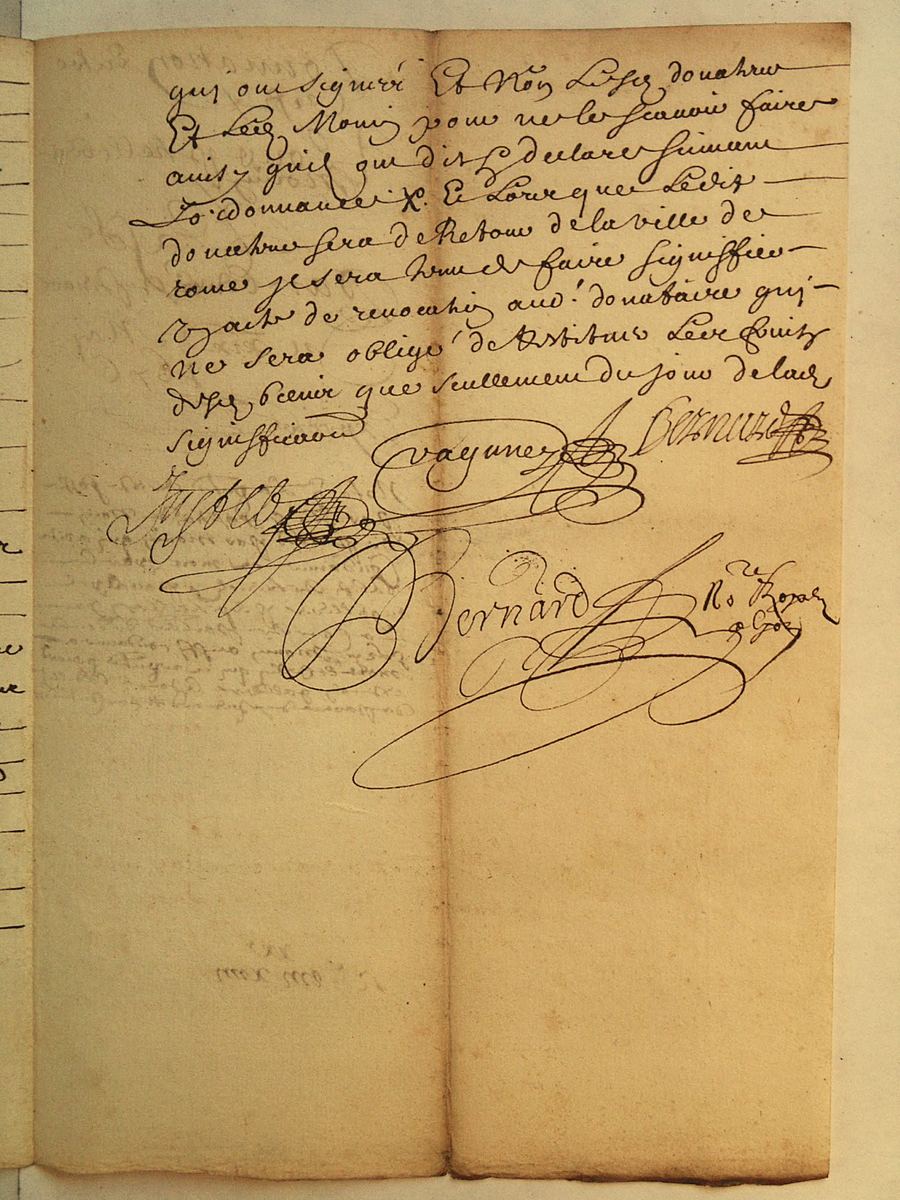 qui ont signéz Et Non Lesd donateur
Et Led Monin pour ne le scavoir faire
ainsy quilz ont dit & declare suivant
Lordonnance X. Et Lorsque Ledit
donateur sera de Retour de la ville de
rome jl sera tenu de faire signiffier
acte de revocation aud. donataire qui
ne sera obligé de Restituer Les fruits
desd biens que seullement du jour de lad
signiffication
vayunez Bernard
Bernard No re Royal